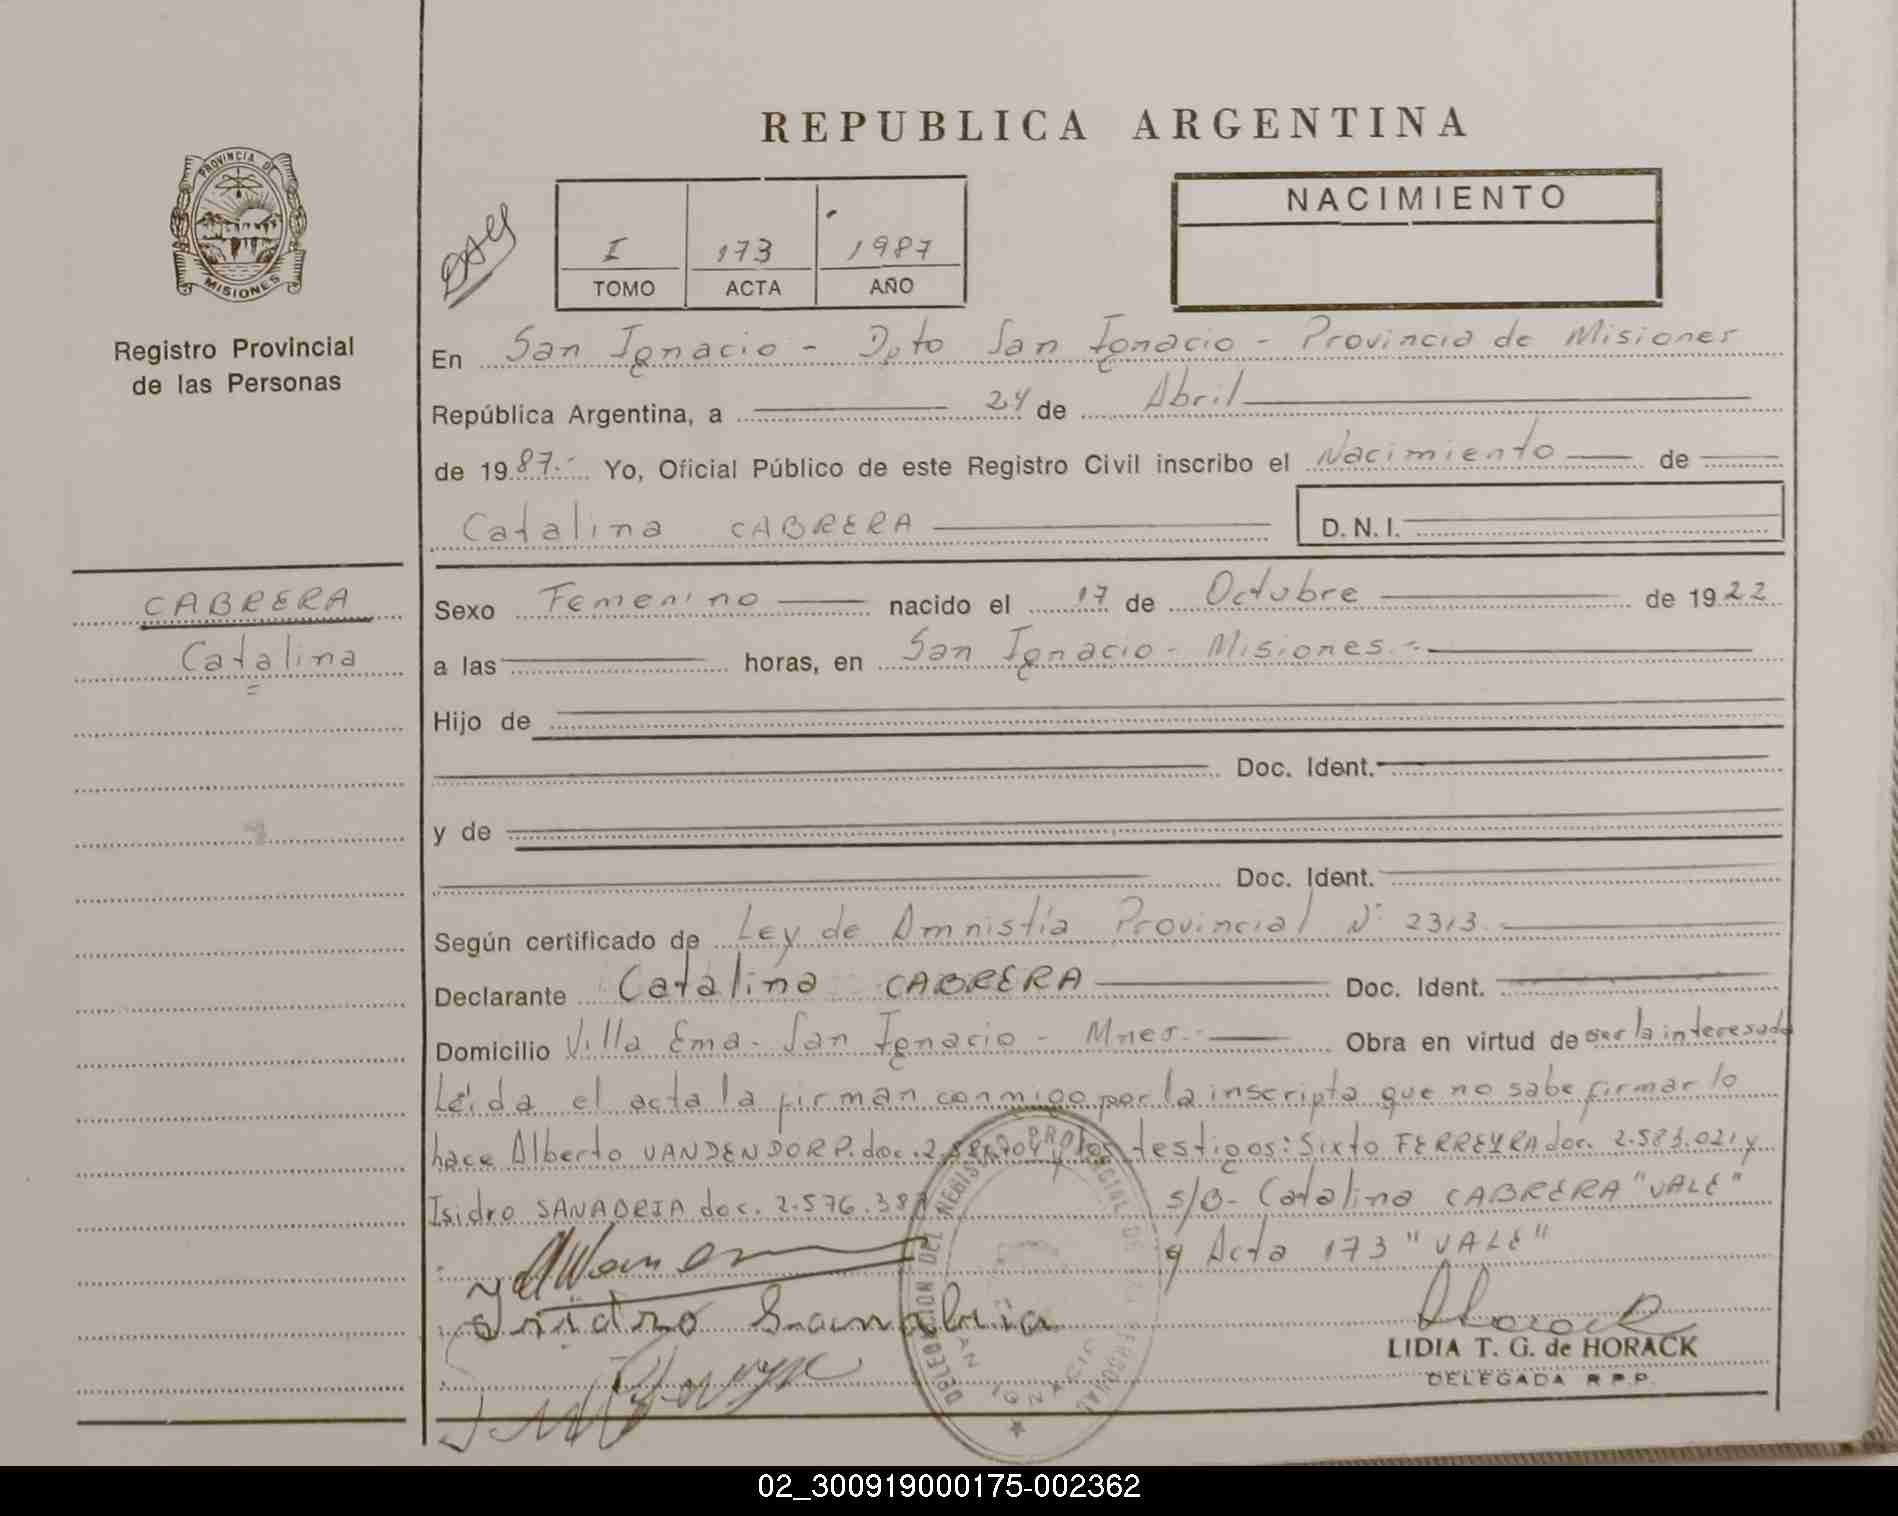 REPUBLICA ARGENTINA
PROVINCIA DE
MISIONES
Registro Provincial
de las Personas
NACIMIENTO
I 173 1987
TOMO ACTA AÑO
En San Ignacio - Dpto San Ignacio - Provincia de Misiones
República Argentina, a 24 de Abril
de 1987.- Yo, Oficial Público de este Registro Civil inscribo el Nacimiento de
Catalina CABRERA D. N. I.
CABRERA
Catalina
Sexo Femenino nacido el 17 de Octubre de 1922
a las horas, en San Ignacio - Misiones.-
Hijo de
Doc. Ident.
y de
Doc. Ident.
Según certificado de Ley de Amnistía Provincial N° 2313.
Declarante Catalina CABRERA Doc. Ident.
Domicilio Villa Ema - San Ignacio - Mnes.- Obra en virtud de ser la interesada
Leída el acta la firman conmigo por la inscripta que no sabe firmar lo
hace Alberto VANDENDORP. doc. y los testigos: Sixto FERREYRA doc. 2.583.021 y
Isidro SANADRIA doc. 2.576. s/B- Catalina CABRERA "VALE"
y Acta 173 "VALE"
Isidro Sanabria
LIDIA T. G. de HORACK
DELEGADA R.P.P.
DELEGACION DEL REGISTRO PROVINCIAL DE LAS PERSONAS
SAN IGNACIO
02_300919000175-002362